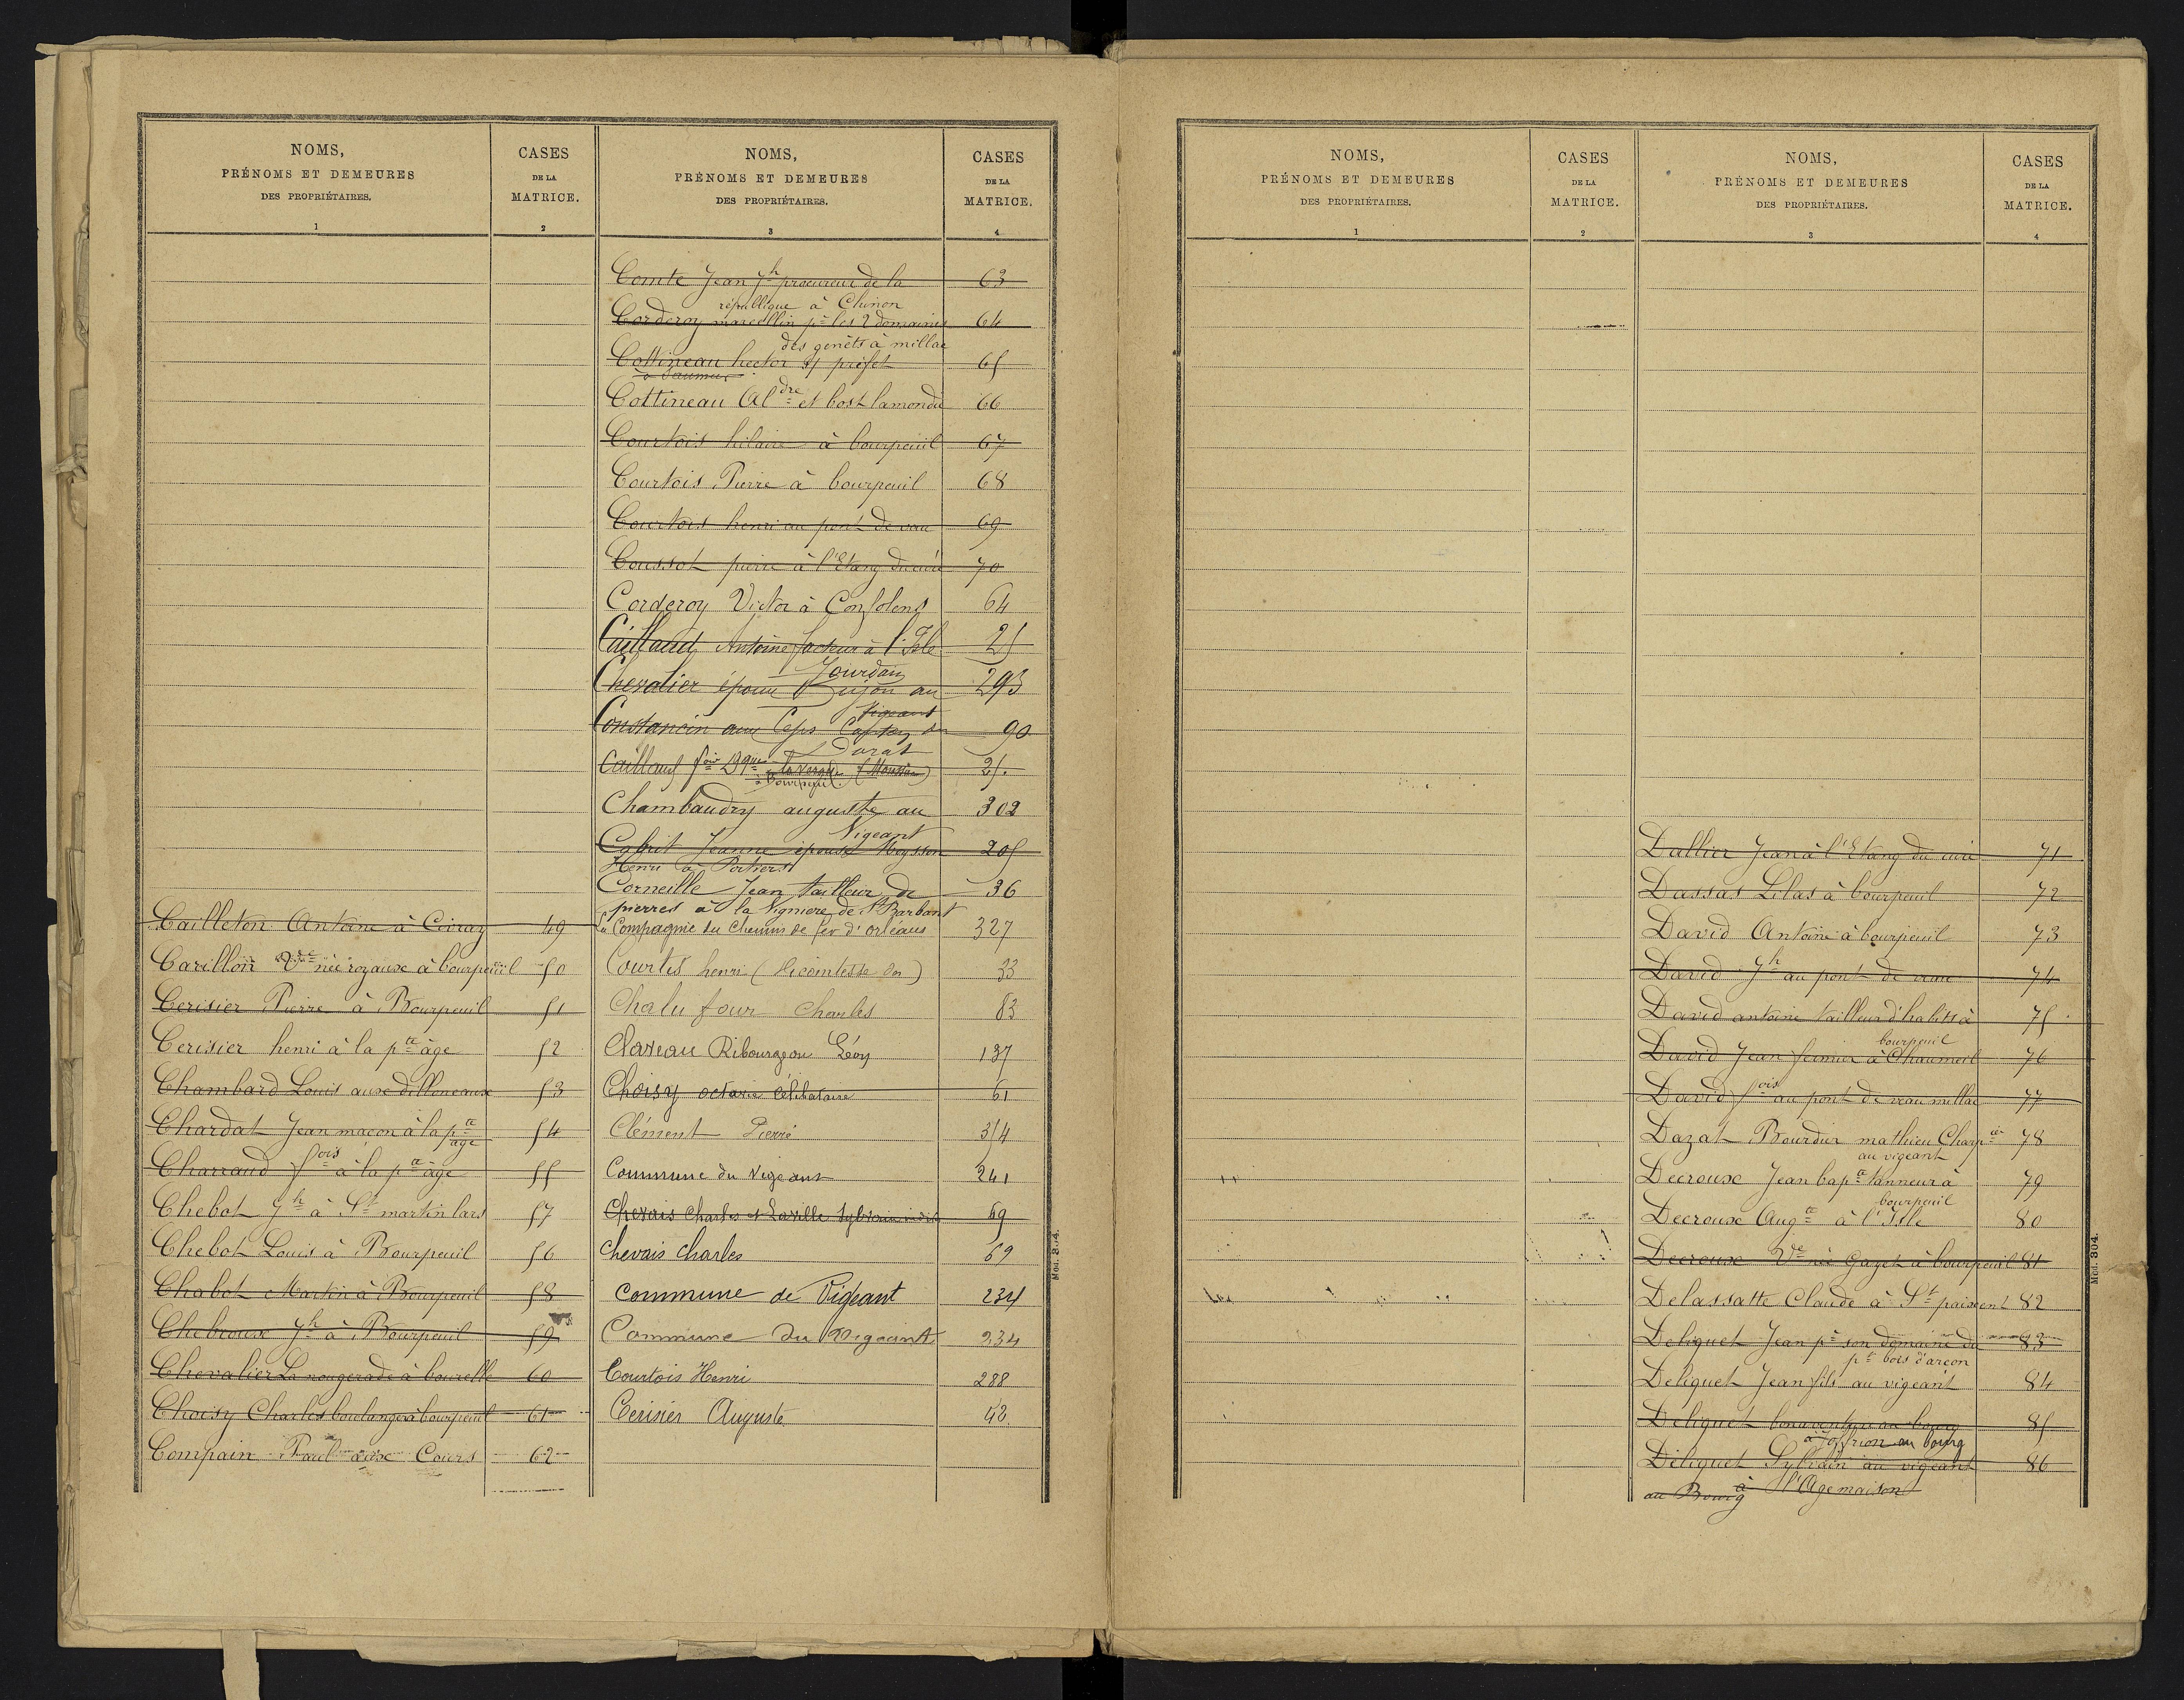 NOMS,
PRÉNOMS ET DEMEURES
DES PROPRIÉTAIRES.
1
CASES
DE LA
MATRICE.
2
Cailleton Antoine à Civray 49
Carillon Vve née rozaux à bourpeuil 50
Cerisier Pierre à Bourpeuil 51
Cerisier henri à la pte âge 52
Chambard Louis aux dilloneaux 53
Chardat Jean maçon à la pte âge 54
Charraud fois à la pte âge 55
Chebot Jh à St martin lars 57
Chebot Louis à Bourpeuil 56
Chabot Martin à Bourpeuil 58
Chebroux Jh à Bourpeuil 59
Chevalier La nougerade à bourelle 60
Choisy Charles boulanger à bourpeuil 61
Compain Paul aux Cours 62
NOMS,
PRÉNOMS ET DEMEURES
DES PROPRIÉTAIRES.
3
CASES
DE LA
MATRICE.
4
Comte Jean Jh procureur de la 63
république à Chinon
Corderoy marcellin pr les 2 domaines 64
des genêts à millac
Cottineau hector s/ préfet 65
à Saumur
Cottineau Aldre et bost lamondie 66
Courtois hilaire à bourpeuil 67
Courtois Pierre à bourpeuil 68
Courtois henri au pont de vau 69
Coussot pierre à l'Etang du curé 70
Corderoy Victor à Confolens 64
Caillaud Antoine facteur à l'Isle 25
Jourdain
Chevalier épouse Dujon au 293
Vigeant
Constancin aux Ceps 90
Darat
Caillaud fois (Moussac) 25
à Bourpeuil
Chambaudry auguste au 302
Vigeant
Cabrit Jeanne épouse Meysson 205
Henri à Poitiers
Corneille Jean tailleur de 36
pierres à la Vignière de St Barbant
La Compagnie du Chemin de fer d'orléans 327
Courtis henri (Vicomtesse de) 33
Chalufour Charles 83
Claveau Ribourgeon Léon 137
Choisy octavie célibataire 61
Clément Pierre 314
Commune du Vigeant 241
Chevais Charles et Laville Sylvain indis 69
Chevais Charles 69
Commune de Vigeant 234
Commune du Vigeant 234
Courtois Henri 288
Cerisier Auguste 42
Mod. 304.
NOMS,
PRÉNOMS ET DEMEURES
DES PROPRIÉTAIRES.
1
CASES
DE LA
MATRICE.
2
NOMS,
PRÉNOMS ET DEMEURES
DES PROPRIÉTAIRES.
3
CASES
DE LA
MATRICE.
4
Dallier Jean à l'Etang du curé 71
Dassas Lilas à bourpeuil 72
David Antoine à bourpeuil 73
David Jh au pont de vau 74
David antoine tailleur d'habits à 75
bourpeuil
David Jean fermier à Chaumeil 76
David fois au pont de vau millac 77
Dazat Bourdier mathieu Charpier 78
au vigeant
Decroux Jean bapte tanneur à 79
bourpeuil
Decroux Augte à l'Isle 80
Decroux Ve née Gazet à bourpeuil 81
Delassatte Claude à St paixent 82
Deliquet Jean pr son domaine du 83
pt bois d'arçon
Deliquet Jean fils au vigeant 84
Deliquet bonaventure au bourg 85
à Joffrion au bourg
Déliquet Sylvain au vigeant 86
au Bourg à l'Age maison
Mod. 304.